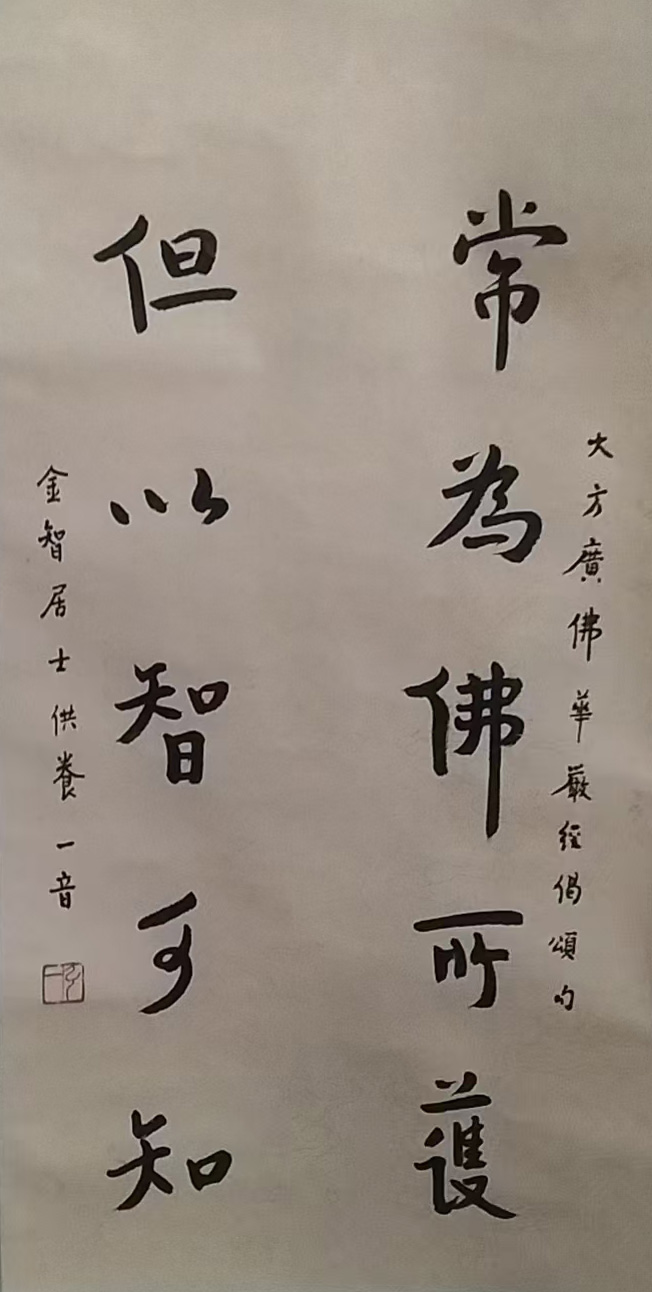 大方廣佛華嚴經偈頌句
常為佛所護
但以智可知
金智居士供養一音